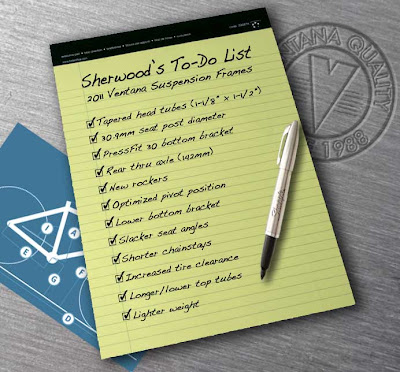 Sherwood's To-Do List
2011 Ventana Suspension Frames
Tapered head tubes (1-1/8" x 1-1/2")
30.9mm seat post diameter
PressFit 30 bottom bracket
Rear thru axle (142mm)
New rockers
Optimized pivot position
Lower bottom bracket
Slacker seat angles
Shorter chainstays
Increased tire clearance
Longer/lower top tubes
Lighter weight
VENTANA QUALITY
1988
I
A
E
F
B
G
D